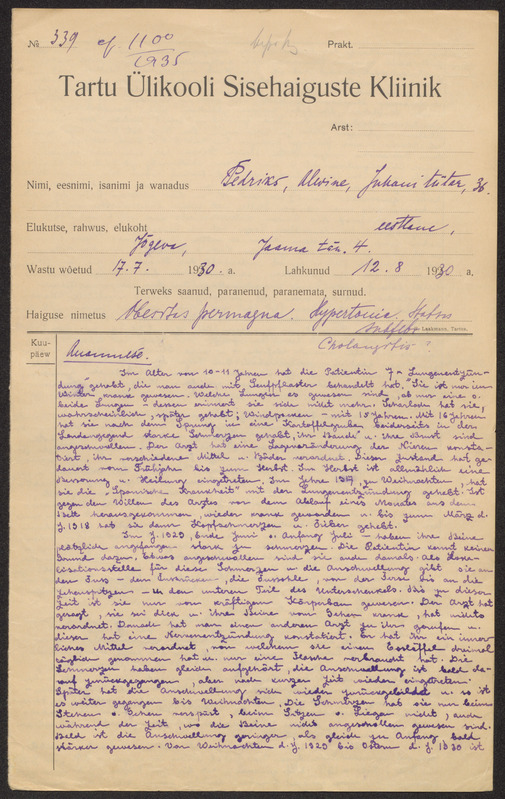 № 339 cf 1100 Prakt.
1935
Tartu Ülikooli Sisehaiguste Kliinik
Arst:
Nimi, eesnimi, isanimi ja wanadus Pedriks, Alwine, Juhani tütar, 36.
Elukutse, rahwus, elukoht eestlane,
Jõgeva, Jaama tän. 4.
Wastu wõetud 17.7. 1930. a. Lahkunud 12.8 1930 a.
Terweks saanud, paranenud, paranemata, surnud.
Haiguse nimetus Obesitas permagna. Hypertonia. Status
subfebr.
Laakmann, Tartus.
Cholangitis?
Kuu-
päew
Anamnese.
Im Alter von 10-11 Jahren hat die Patientin 7 x Lungenentzün-
dung gehabt, die man auch mit Senfpflaster behandelt hat. Sie ist nur im
Winter krank gewesen. Welche Lungen es gewesen sind, ob nur eine o.
beide Lungen, dessen erinnert sie sich nicht mehr. Scharlach hat sie,
wahrscheinlich, später gehabt; Windpocken - mit 15 Jahren. Mit 16 Jahren
hat sie nach dem Sprung in eine Kartoffelgrube beiderseits in der
Lendengegend starke Schmerzen gehabt, ihr Beide u. ihre Brust sind
angeschwollen. Der Arzt hat eine Lageveränderung der Nieren konsta-
tiert, ihr verschiedene Mittel u. Bäder verordnet. Dieser Zustand hat ge-
dauert vom Frühjahr bis zum Herbst. Im Herbst ist allmählich eine
Besserung u. Heilung eingetreten. Im Jahre 1917, zu Weihnachten, hat
sie die "Spanische Krankheit" mit der Lungenentzündung gehabt. Ist
gegen den Willen des Arztes vor dem Ablauf eines Monates aus dem
Bett herausgekommen, wieder krank geworden u. bis zum März d.
J. 1918 hat sie dann Kopfschmerzen u. Fieber gehabt.
Im J. 1929, Ende Juni o. Anfang Juli - haben ihre Beine
plötzlich angefangen stark zu schmerzen. Die Patientin kennt keinen
Grund dazu. Etwas angeschwollen sind sie auch damals. Als Loka-
lisationsstelle für diese Schmerzen u. die Anschwellung gibt sie an
den Fuss - den Fussrücken, die Fussohle, von der Ferse bis an die
Zehenspitzen - u. den unteren Teil des Unterschenkels. Bis zu dieser
Zeit ist sie nur von kräftigem Körperbau gewesen. Der Arzt hat
gesagt, sie sei dick u. ihre Beine vom Gehen krank, hat nichts
verordnet. Danach hat man einen anderen Arzt zu ihr gerufen u.
dieser hat eine Nervenentzündung konstatiert. Er hat ihr ein inner-
liches Mittel verordnet, von welchem sie einen Esslöffel dreimal
täglich genommen hat u. nur eine Flasche verbraucht hat. Die
Schmerzen haben gleich aufgehört, die Anschwellung ist bald da-
rauf zurückgegangen, aber nach kurzer Zeit wieder eingetreten.
Später hat die Anschwellung sich wieder zurückgebildet u. so ist
es weiter gegangen bis Weihnachten. Die Schmerzen hat sie nur beim
Stehen u. Gehen verspürt, beim Sitzen u. Liegen nicht, auch
während der Zeit, wo die Beine nicht angeschwollen gewesen sind.
Bald ist die Anschwellung geringer, als gleich zu Anfang, bald
stärker gewesen. Von Weihnachten d. J. 1929 bis Ostern d. J. 1930 ist